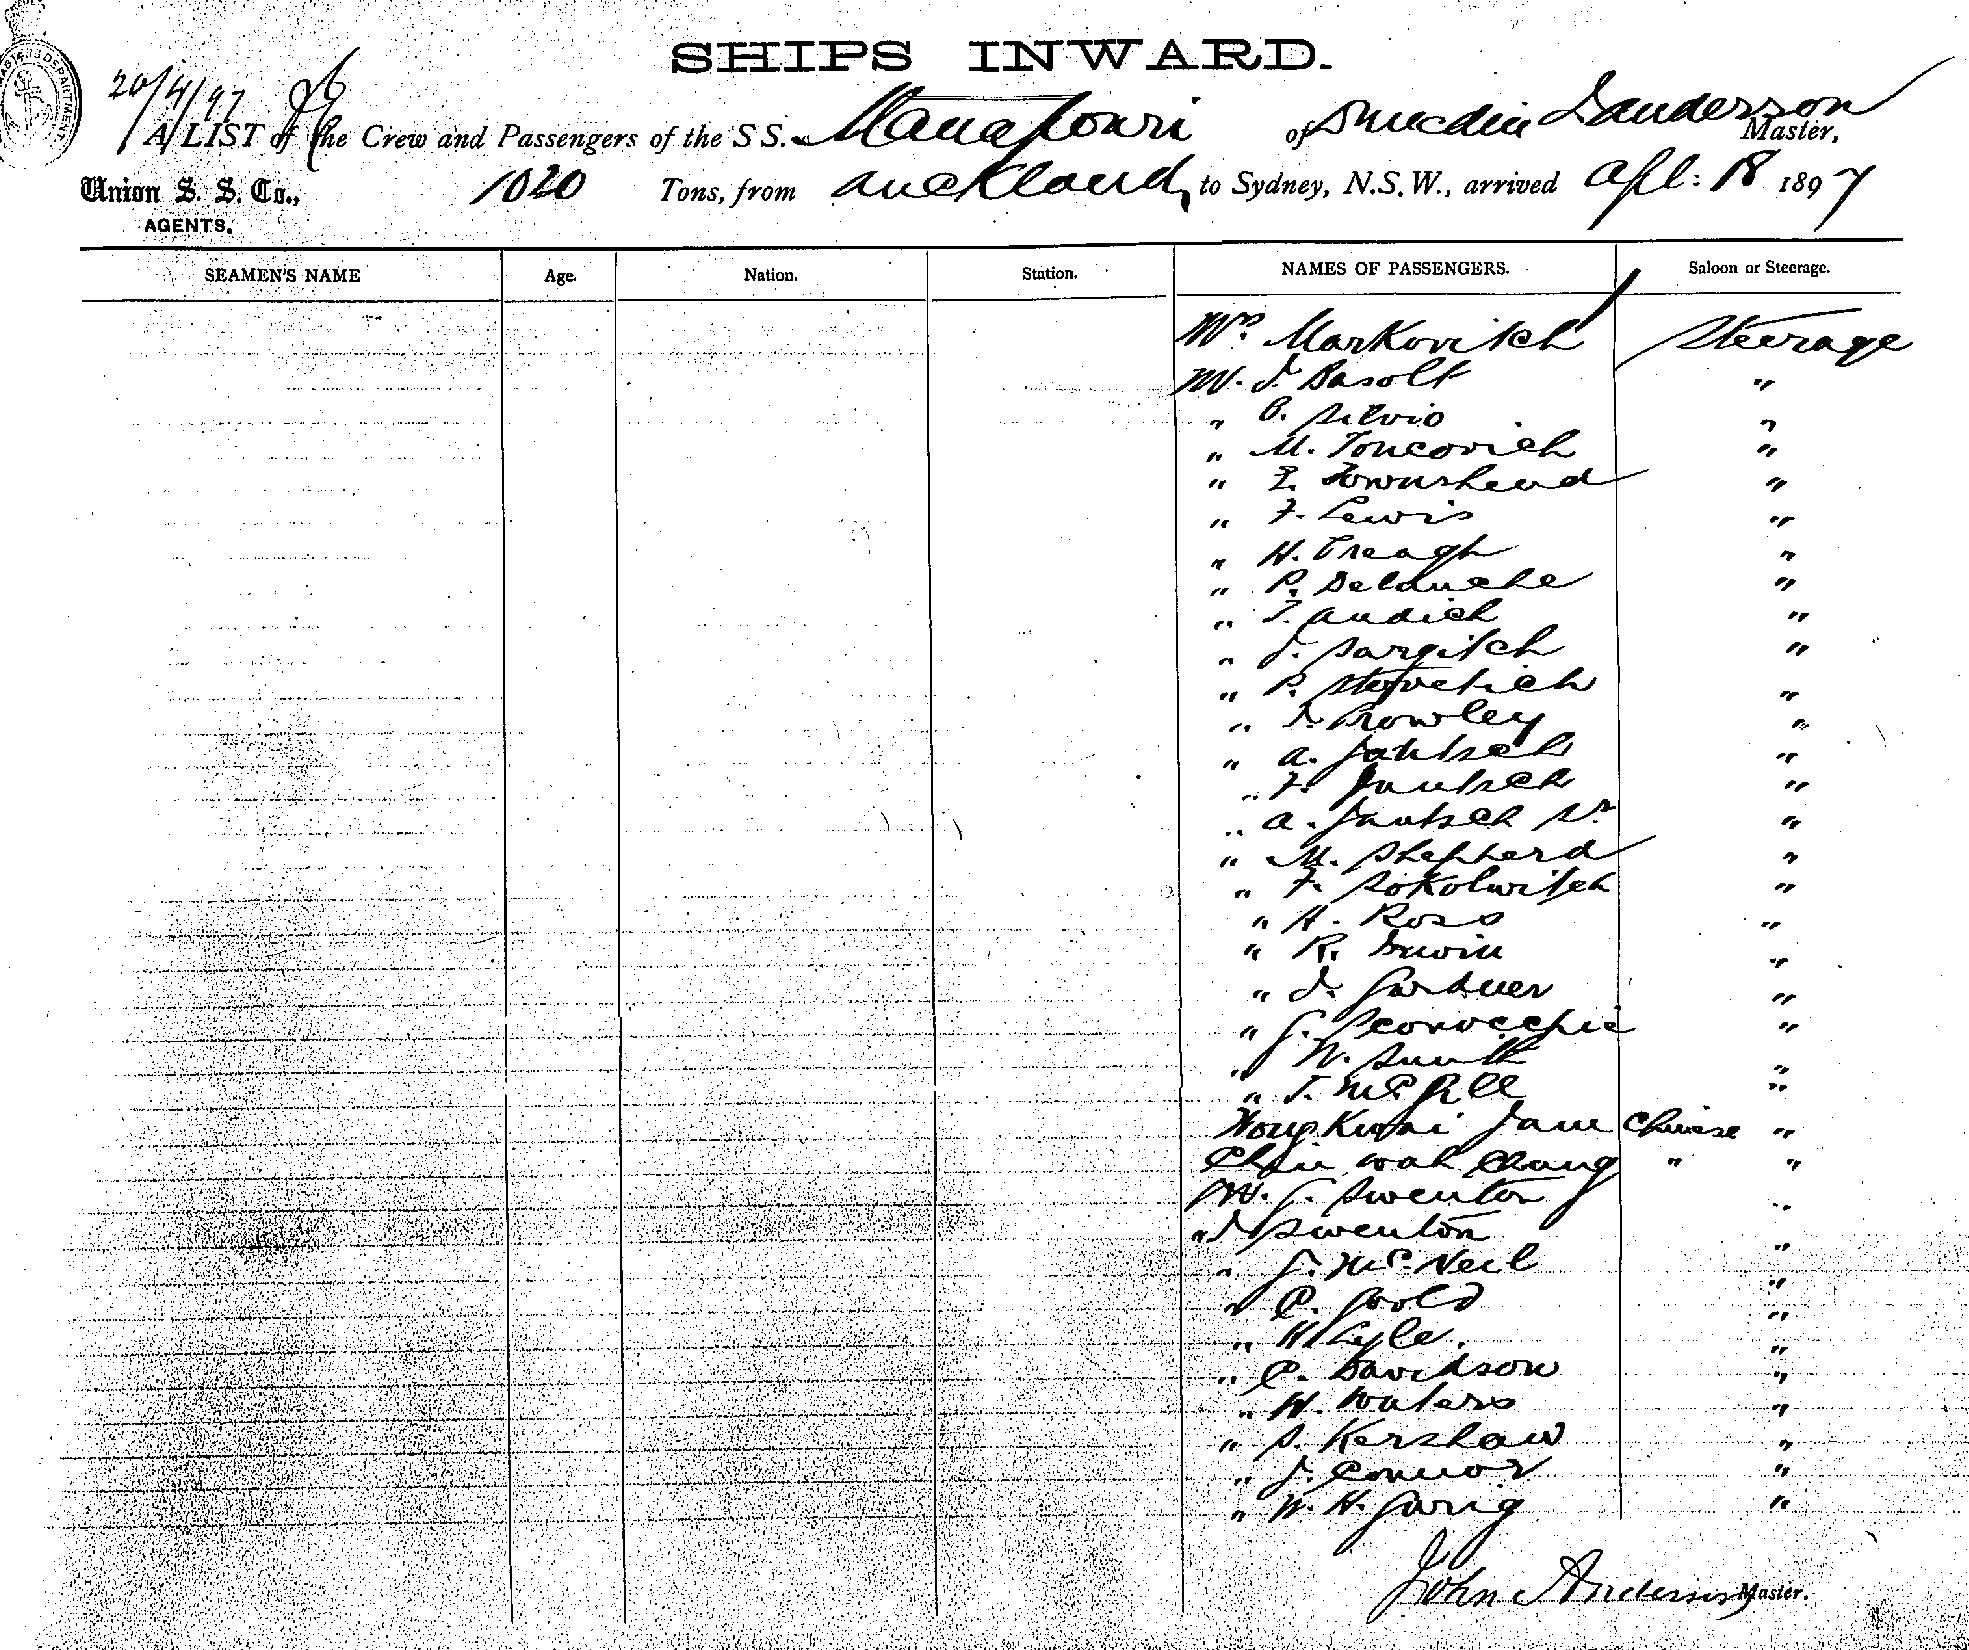 SHIPS INWARD.
20/4/97
A LIST of the Crew and Passengers of the S S. Manapouri of Dunedin Sanderson Master,
Union S. S. Co., 1020 Tons, from Auckland, to Sydney, N.S.W., arrived Apl: 18 1897
AGENTS.
SEAMEN'S NAME Age. Nation. Station. NAMES OF PASSENGERS. Saloon or Steerage.
Mrs. Markovitch Steerage
Mr. J. Basolt "
" C. Silvio "
" M. Toncovich "
" E. Townshend "
" F. Lewis "
" H. Creagh "
" P. "
" T. Andich "
" J. Sargitch "
" P. "
" J. Crowley "
" A. Jantsch "
" F. Jantsch "
" A. Jantsch Sr "
" M. Shepherd "
" F. Sokolwitch "
" H. Ross "
" R. Irwin "
" J. Gardner "
" G. "
" W. Smith "
" T. McGill "
Wong Kwai Jam Chinese "
Chin Wah Chang " "
Mr. G. Swenton "
" J Swenton "
" G. McNeil "
" P. Goold "
" H Lyle. "
" C. Davidson "
" W. Waters "
" S. Kershaw "
" J. Connor "
" W. H. "
John Anderson Master.